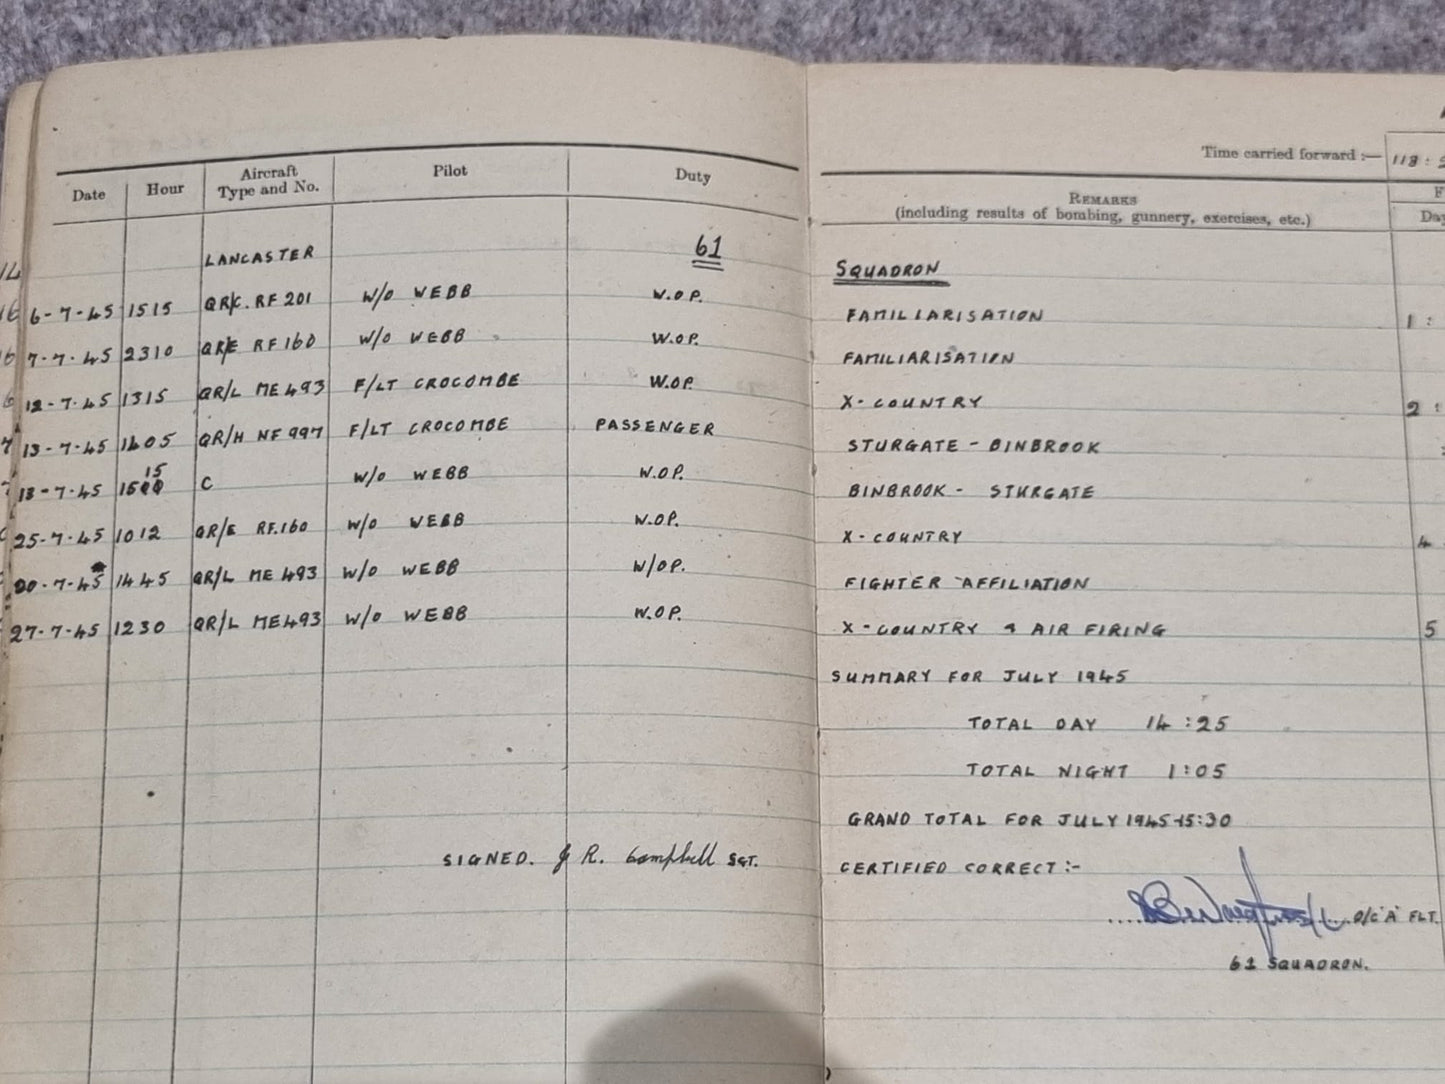 Time carried forward :— 118 :
Date Hour Aircraft Type and No. Pilot Duty REMARKS (including results of bombing, gunnery, exercises, etc.) Day
LANCASTER 61 SQUADRON
6-7-45 1515 QR/C. RF 201 W/O WEBB W.O.P. FAMILIARISATION 1 :
7-7-45 2310 QR/E RF160 W/O WEBB W.OP. FAMILIARISATION
12-7-45 1315 QR/L ME493 F/LT CROCOMBE W.OP. X-COUNTRY 2 :
13-7-45 1405 QR/H NF997 F/LT CROCOMBE PASSENGER STURGATE - BINBROOK
13-7-45 1515 C W/O WEBB W.OP. BINBROOK - STURGATE
25-7-45 1012 QR/E RF.160 W/O WEBB W.OP. X-COUNTRY 4
20-7-45 1445 QR/L ME493 W/O WEBB W/OP. FIGHTER AFFILIATION
27-7-45 1230 QR/L ME493 W/O WEBB W.OP. X-COUNTRY & AIR FIRING 5
SUMMARY FOR JULY 1945
TOTAL DAY 14 : 25
TOTAL NIGHT 1 : 05
GRAND TOTAL FOR JULY 1945 - 15:30
SIGNED. J R. Campbell SGT. CERTIFIED CORRECT :-
O/C 'A' FLT.
61 SQUADRON.